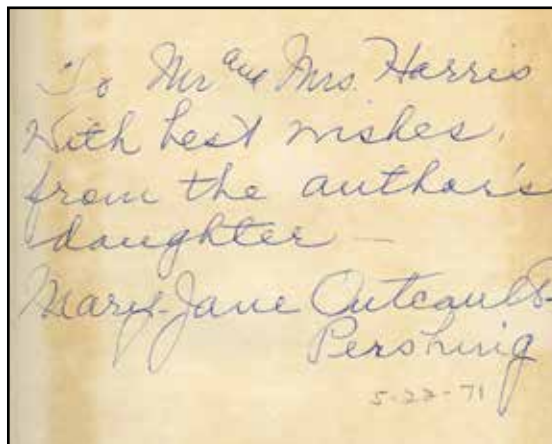 To Mr and Mrs. Harris
With best wishes,
from the author's
daughter —
Mary-Jane Outcault
Pershing
5-22-71